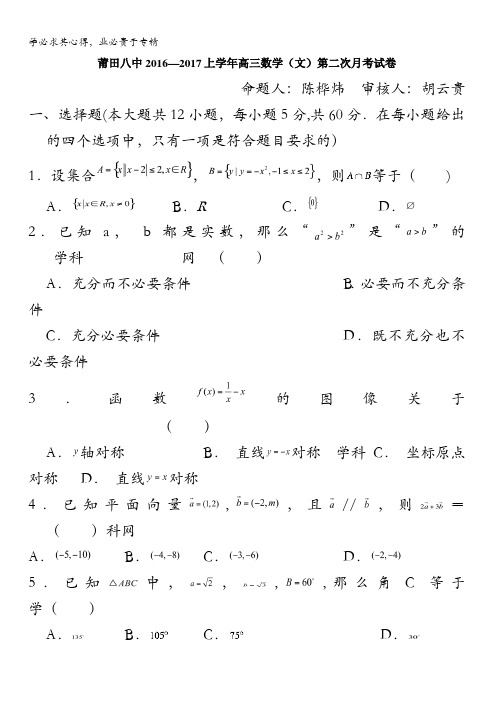 学必求其心得，业必贵于专精
莆田八中 2016—2017 上学年高三数学（文）第二次月考试卷
命题人：陈桦炜 审核人：胡云贵
一、选择题(本大题共 12 小题，每小题 5 分,共 60 分．在每小题给出
的四个选项中，只有一项是符合题目要求的）
1．设集合 A={x||x−2|≤2,x∈R}，B={y|y=−x²,−1≤x≤2}，则 A∩B 等于（ ）
A．{x|x∈R,x≠0} B．R C．{0} D．∅
2．已知 a， b 都是实数，那么“ a²>b² ”是“ a>b ”的
学科 网 （ ）
A．充分而不必要条件 B 必要而不充分条
件
C．充分必要条件 D．既不充分也不
必要条件
3 ． 函 数 f(x)=1/x−x 的 图 像 关 于
（ ）
A．y 轴对称 B． 直线 y=−x 对称 学科 C． 坐标原点
对称 D． 直线 y=x 对称
4．已知平面向量 a=(1,2)，b=(−2,m)，且 a // b，则 2a+3b＝
（ ）科网
A．(−5,−10) B．(−4,−8) C．(−3,−6) D．(−2,−4)
5．已知 △ABC 中， a=√2， b=√3，B=60°，那么角 C 等于
学（ ）
A．135° B．105° C．75° D．90°